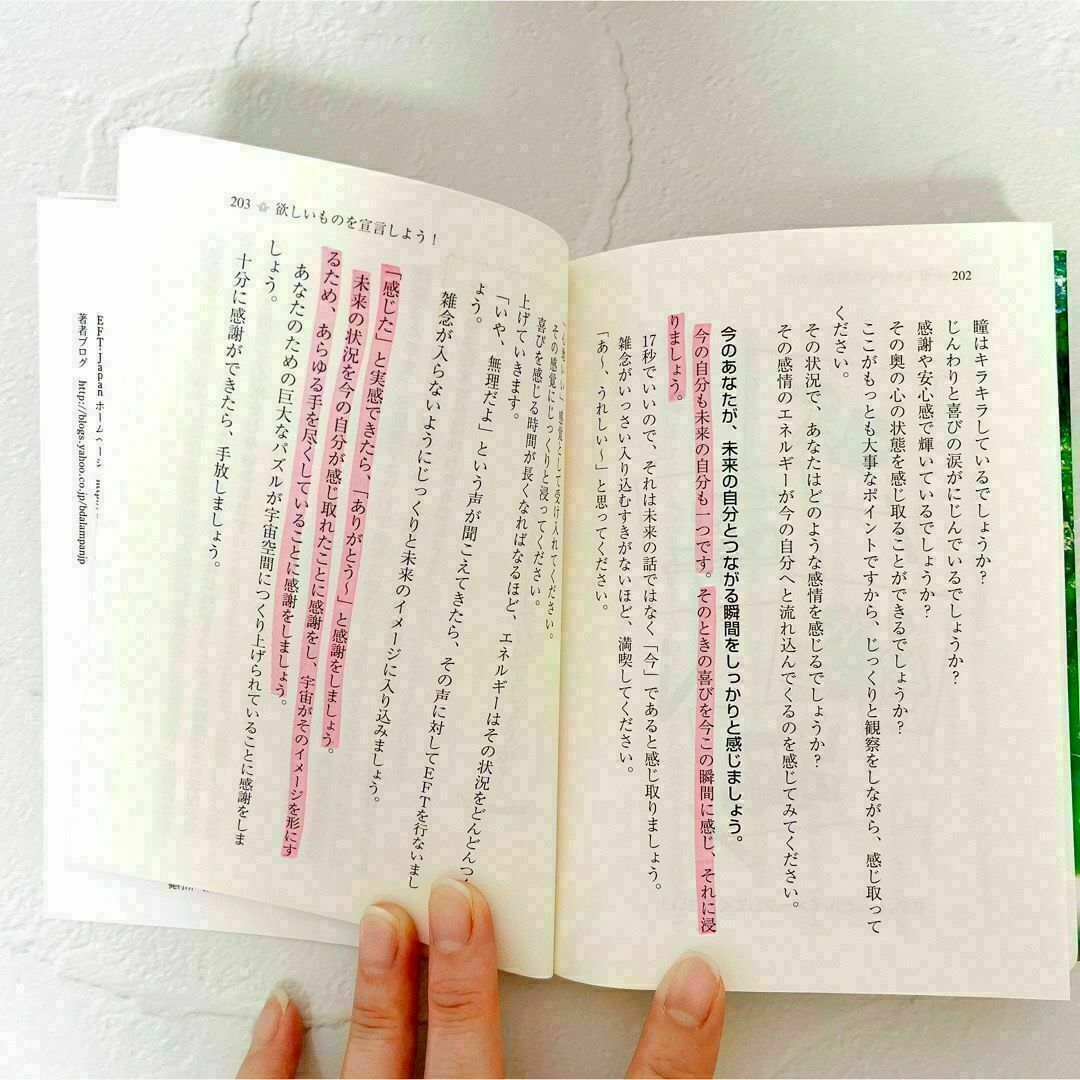 202
瞳はキラキラしているでしょうか?
じんわりと喜びの涙がにじんでいるでしょうか?
感謝や安心感で輝いているでしょうか?
その奥の心の状態を感じ取ることができるでしょうか?
ここがもっとも大事なポイントですから、じっくりと観察をしながら、感じ取って
ください。
その状況で、あなたはどのような感情を感じるでしょうか?
その感情のエネルギーが今の自分へと流れ込んでくるのを感じてみてください。
今のあなたが、未来の自分とつながる瞬間をしっかりと感じましょう。
今の自分も未来の自分も一つです。そのときの喜びを今この瞬間に感じ、それに浸
りましょう。
17秒でいいので、それは未来の話ではなく「今」であると感じ取りましょう。
雑念がいっさい入り込むすきがないほど、満喫してください。
「あ〜、うれしい〜」と思ってください。
203 欲しいものを宣言しよう!
感覚として受け入れてください。
その感覚にじっくりと浸ってください。
喜びを感じる時間が長くなればなるほど、エネルギーはその状況をどんどん
上げていきます。
「いや、無理だよ」という声が聞こえてきたら、その声に対してEFTを行ないまし
ょう。
雑念が入らないようにじっくりと未来のイメージに入り込みましょう。
「感じた」と実感できたら、「ありがとう〜」と感謝をしましょう。
未来の状況を今の自分が感じ取れたことに感謝をし、宇宙がそのイメージを形にす
るため、あらゆる手を尽くしていることに感謝をしましょう。
あなたのための巨大なパズルが宇宙空間につくり上げられていることに感謝をしま
しょう。
十分に感謝ができたら、手放しましょう。
EFT-Japan ホーム
著者ブログ http://blogs.yahoo.co.jp/bdalampanjp
発行所